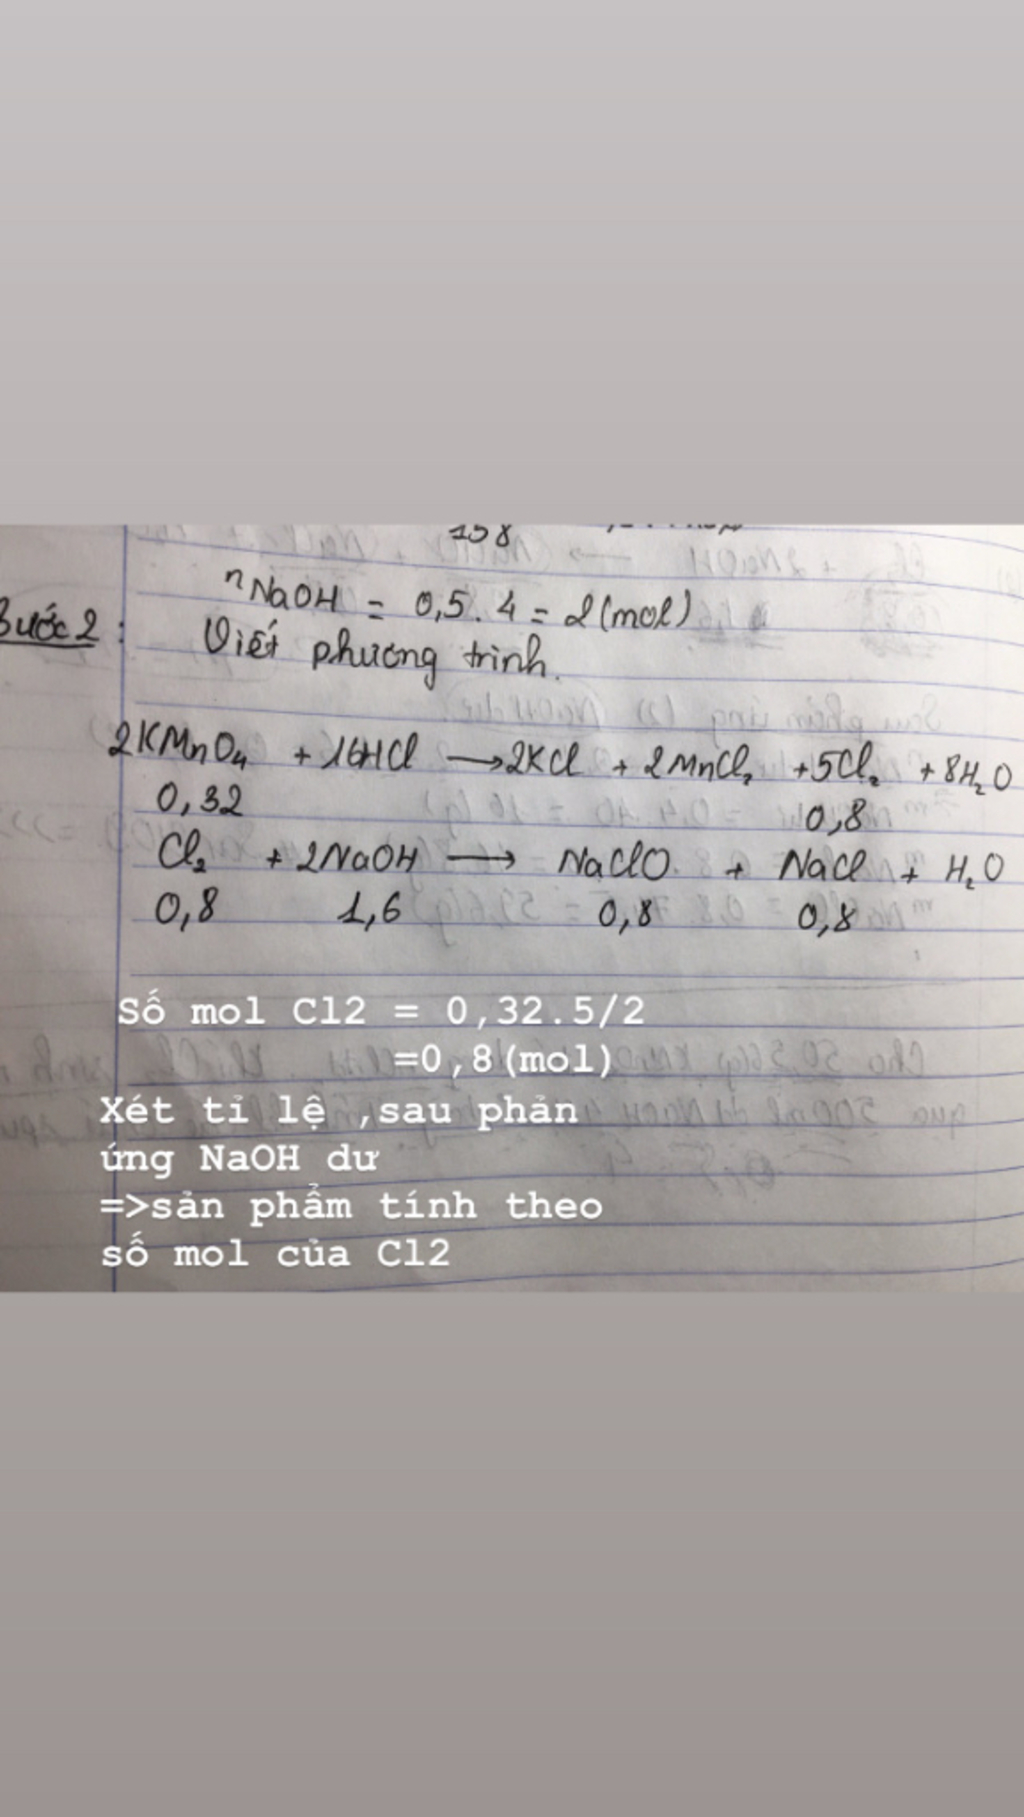 158
nNaOH = 0,5. 4 = 2 (mol)
Bước 2 : Viết phương trình.
2KMnO4 + 16HCl → 2KCl + 2MnCl2 + 5Cl2 + 8H2O
0,32 0,8
Cl2 + 2NaOH → NaClO + NaCl + H2O
0,8 1,6 0,8 0,8
Số mol Cl2 = 0,32.5/2
=0,8(mol)
Xét tỉ lệ ,sau phản
ứng NaOH dư
=>sản phẩm tính theo
số mol của Cl2